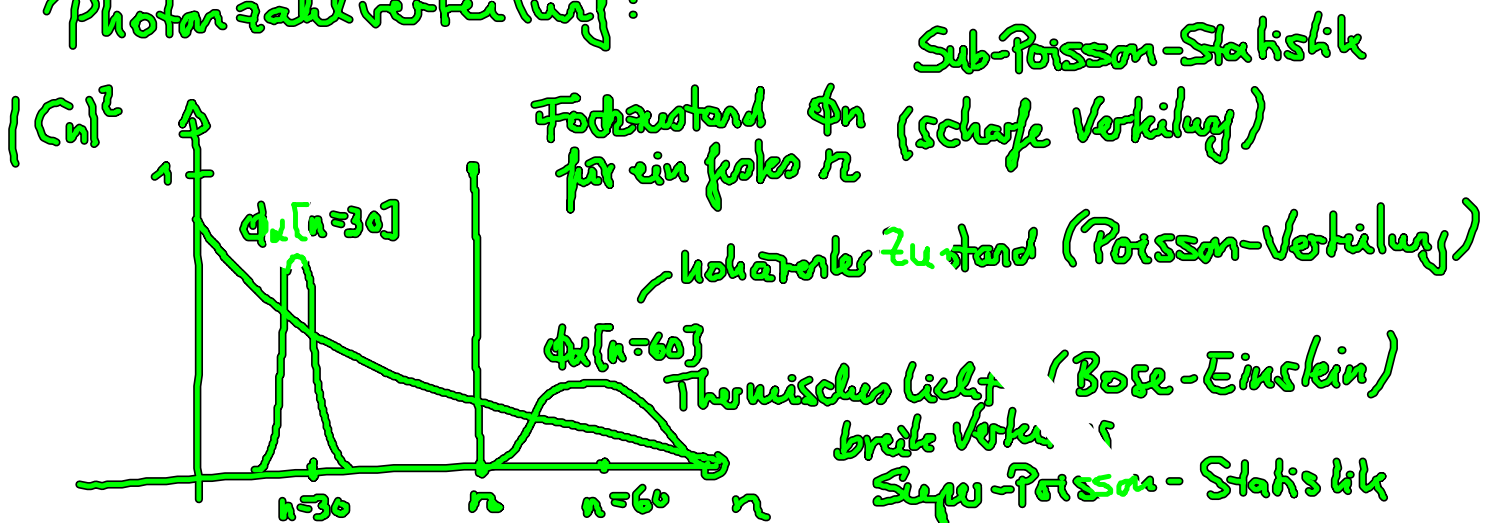 Photonzahlverteilung:
Sub-Poisson-Statistik
|Cn|²
Fockzustand ϕn (scharfe Verteilung)
für ein festes n
1
ϕα[n=30]
kohärenter Zustand (Poisson-Verteilung)
ϕα[n=60]
Thermisches Licht (Bose-Einstein)
breite
Super-Poisson-Statistik
n=30 n n=60 n